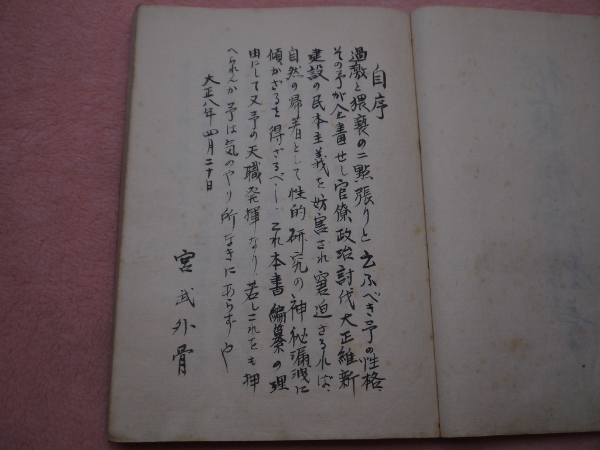 自序
過激と猥褻の二點張りと云ふべき予の性格、
その予が企畫せし官僚政治討伐大正維新
建設の民本主義を妨害され窘迫さるれば、
自然の帰着として性的研究の神秘漏洩に
傾かざるを得ざるべし、これ本書編纂の理
由にして又予の天職発揮なり、若しこれをも押
へられんか予は気のやり所なきにあらずや
大正八年四月二十日
宮武外骨